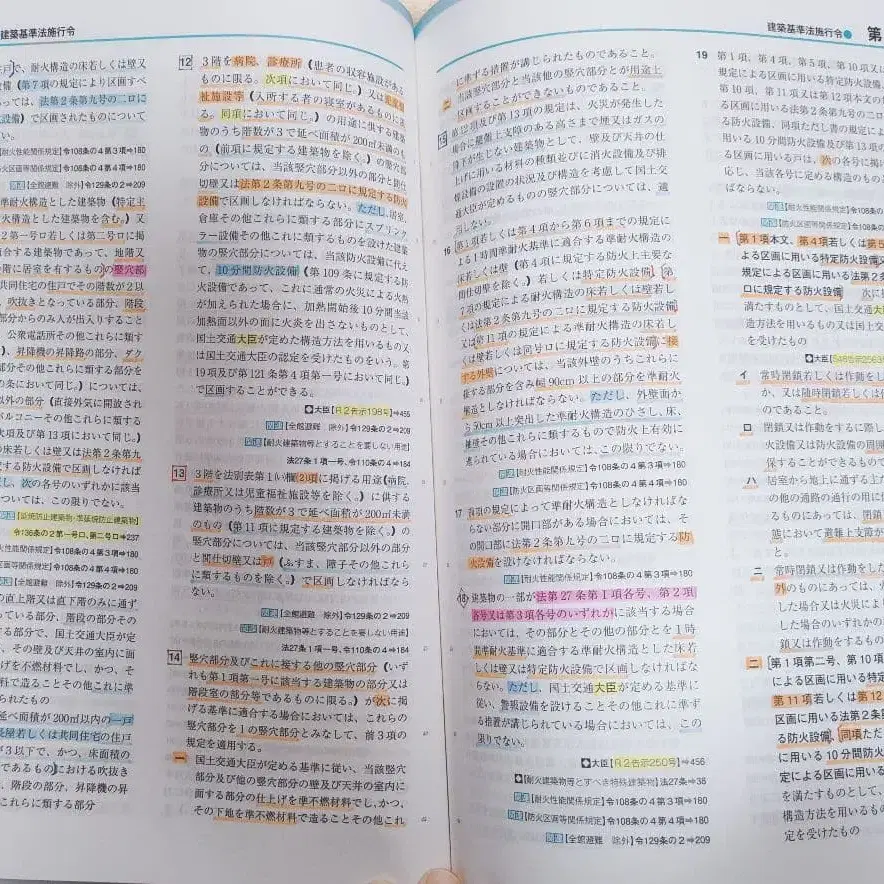 建築基準法施行令
戸)、耐火構造の床若しくは壁又
備(第7項の規定により区画すべ
あっては、法第2条第九号の二ロに
設備)で区画されたものについて
い。
【耐火性能関係規定】令108条の4第3項⇒180
火区画等関係規定】令108条の4第4項⇒180
関連【全館避難 除外】令129条の2⇒209
準耐火構造とした建築物(特定主
火構造とした建築物を含む。)又
2第一号ロ若しくは第二号ロに掲
合する建築物であって、地階又
階に居室を有するもの)の竪穴部
共同住宅の住戸でその階数が2以
、吹抜きとなっている部分、階段
部分からのみ人が出入りすること
公衆電話所その他これらに類す
)、昇降機の昇降路の部分、ダク
部分その他これらに類する部分を
の条において同じ。)については、
以外の部分(直接外気に開放され
バルコニーその他これらに類する
項及び第13項において同じ。)
床若しくは壁又は法第2条第九
定する防火設備で区画しなければ
だし、次の各号のいずれかに該当
ついては、この限りでない。
【延焼防止建築物・準延焼防止建築物】
令136条の2第一号ロ、第二号ロ⇒237
火性能関係規定】令108条の4第3項⇒180
画等関係規定】令108条の4第4項⇒180
関連【全館避難 除外】令129条の2⇒209
の直上階又は直下階のみに通ず
っている部分、階段の部分その
する部分で、国土交通大臣が定
、その壁及び天井の室内に面
げを不燃材料でし、かつ、そ
料で造ることその他これに準
られたもの
延べ面積が200㎡以内の一戸
長屋若しくは共同住宅の住戸
が3以下で、かつ、床面積の
であるもの)における吹抜き
、階段の部分、昇降機の昇
れらに類する部分
12 3階を病院、診療所(患者の収容施設がある
ものに限る。次項において同じ。)又は児童福
祉施設等(入所する者の寝室があるものに限
る。同項において同じ。)の用途に供する建築
物のうち階数が3で延べ面積が200㎡未満のも
の(前項に規定する建築物を除く。)の竪穴部
分については、当該竪穴部分以外の部分と間仕
切壁又は法第2条第九号の二ロに規定する防火
設備で区画しなければならない。ただし、居室、
倉庫その他これらに類する部分にスプリンク
ラー設備その他これに類するものを設けた建築
物の竪穴部分については、当該防火設備に代え
て、10分間防火設備(第109条に規定する防
火設備であって、これに通常の火災による火熱
が加えられた場合に、加熱開始後10分間当該
加熱面以外の面に火炎を出さないものとして、
国土交通大臣が定めた構造方法を用いるもの又
は国土交通大臣の認定を受けたものをいう。第
19項及び第121条第4項第一号において同じ。)
で区画することができる。
◆大臣【R.2告示198号】⇒455
関連【全館避難 除外】令129条の2⇒209
関連【耐火建築物等とすることを要しない用途】
法27条1項一号、令110条の4⇒184
13 3階を法別表第1(い)欄(2)項に掲げる用途(病院、
診療所又は児童福祉施設等を除く。)に供する
建築物のうち階数が3で延べ面積が200㎡未満
のもの(第11項に規定する建築物を除く。)の
竪穴部分については、当該竪穴部分以外の部分
と間仕切壁又は戸(ふすま、障子その他これら
に類するものを除く。)で区画しなければなら
ない。
関連【全館避難 除外】令129条の2⇒209
関連【耐火建築物等とすることを要しない用途】
法27条1項一号、令110条の4⇒184
14 竪穴部分及びこれに接する他の竪穴部分(いず
れも第1項第一号に該当する建築物の部分又は
階段室の部分等であるものに限る。)が次に掲
げる基準に適合する場合においては、これらの
竪穴部分を1の竪穴部分とみなして、前3項の
規定を適用する。
一 国土交通大臣が定める基準に従い、当該竪穴
部分及び他の竪穴部分の壁及び天井の室内に
面する部分の仕上げを準不燃材料でし、かつ、
その下地を準不燃材料で造ることその他これ
建築基準法施行令● 第
に準ずる措置が講じられたものであること。
二 当該竪穴部分と当該他の竪穴部分とが用途上
区画することができないものであること。
15 第12項及び第13項の規定は、火災が発生した
場合に避難上支障のある高さまで煙又はガスの
降下が生じない建築物として、壁及び天井の仕
上げに用いる材料の種類並びに消火設備及び排
煙設備の設置の状況及び構造を考慮して国土交
通大臣が定めるものの竪穴部分については、適
用しない。
16 第1項若しくは第4項から第6項までの規定に
よる1時間準耐火基準に適合する準耐火構造の
床若しくは壁(第4項に規定する防火上主要な
間仕切壁を除く。)若しくは特定防火設備、第
7項の規定による耐火構造の床若しくは壁若し
くは法第2条第九号の二ロに規定する防火設備
又は第11項の規定による準耐火構造の床若し
くは壁若しくは同号ロに規定する防火設備に接
する外壁については、当該外壁のうちこれらに
接する部分を含み幅90cm以上の部分を準耐火
構造としなければならない。ただし、外壁面か
ら50cm以上突出した準耐火構造のひさし、床、
袖壁その他これらに類するもので防火上有効に
遮られている場合においては、この限りでない。
関連【耐火性能関係規定】令108条の4第3項⇒180
関連【防火区画等関係規定】令108条の4第4項⇒180
17 前項の規定によって準耐火構造としなければな
らない部分に開口部がある場合においては、そ
の開口部に法第2条第九号の二ロに規定する防
火設備を設けなければならない。
関連【耐火性能関係規定】令108条の4第3項⇒180
関連【防火区画等関係規定】令108条の4第4項⇒180
18 建築物の一部が法第27条第1項各号、第2項
各号又は第3項各号のいずれかに該当する場合
においては、その部分とその他の部分とを1時
間準耐火基準に適合する準耐火構造とした床若
しくは壁又は特定防火設備で区画しなければな
らない。ただし、国土交通大臣が定める基準に
従い、警報設備を設けることその他これに準ず
る措置が講じられている場合においては、この
限りでない。
◆大臣【R.2告示250号】⇒456
◆【耐火建築物等とすべき特殊建築物】法27条⇒36
関連【耐火性能関係規定】令108条の4第3項⇒180
関連【防火区画等関係規定】令108条の4第4項⇒180
関連【全館避難 除外】令129条の2⇒209
19 第1項、第4項、第5項、第10項又は
規定による区画に用いる特定防火設備
第10項、第11項又は第12項本文の規
る区画に用いる法第2条第九号の二ロに
る防火設備、同項ただし書の規定による
用いる10分間防火設備及び第13項の
る区画に用いる戸は、次の各号に掲げ
応じ、当該各号に定める構造のものと
ばならない。
関連【耐火性能関係規定】令108条の
関連【防火区画等関係規定】令108条の
一 第1項本文、第4項若しくは第5
よる区画に用いる特定防火設備又
規定による区画に用いる法第2条
ロに規定する防火設備 次に
満たすものとして、国土交通大
造方法を用いるもの又は国土交
を受けたもの
◆大臣【S48告示2563
イ 常時閉鎖若しくは作動をし
又は随時閉鎖若しくは作
のであること。
ロ 閉鎖又は作動をするに際し
火設備又は防火設備の周囲
保することができるもので
ハ 居室から地上に通ずる主た
の他の通路の通行の用に供
するものにあっては、閉鎖
態において避難上支障が
と。
ニ 常時閉鎖又は作動をした
外のものにあっては、
した場合又は火災によ
した場合のいずれかの
鎖又は作動をするもの
二 第1項第二号、第10項
による区画に用いる特定
第11項若しくは第12
区画に用いる法第2条第
る防火設備、同項ただ
に用いる10分間防火
定による区画に用いる
を満たすものとして、
構造方法を用いるもの
定を受けたもの